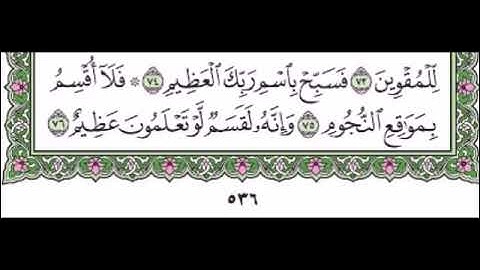 لِّلْمُقْوِينَ ٧٣ فَسَبِّحْ بِاسْمِ رَبِّكَ الْعَظِيمِ ٧٤ ۞ فَلَا أُقْسِمُ
بِمَوَاقِعِ النُّجُومِ ٧٥ وَإِنَّهُ لَقَسَمٌ لَّوْ تَعْلَمُونَ عَظِيمٌ ٧٦
٥٣٦